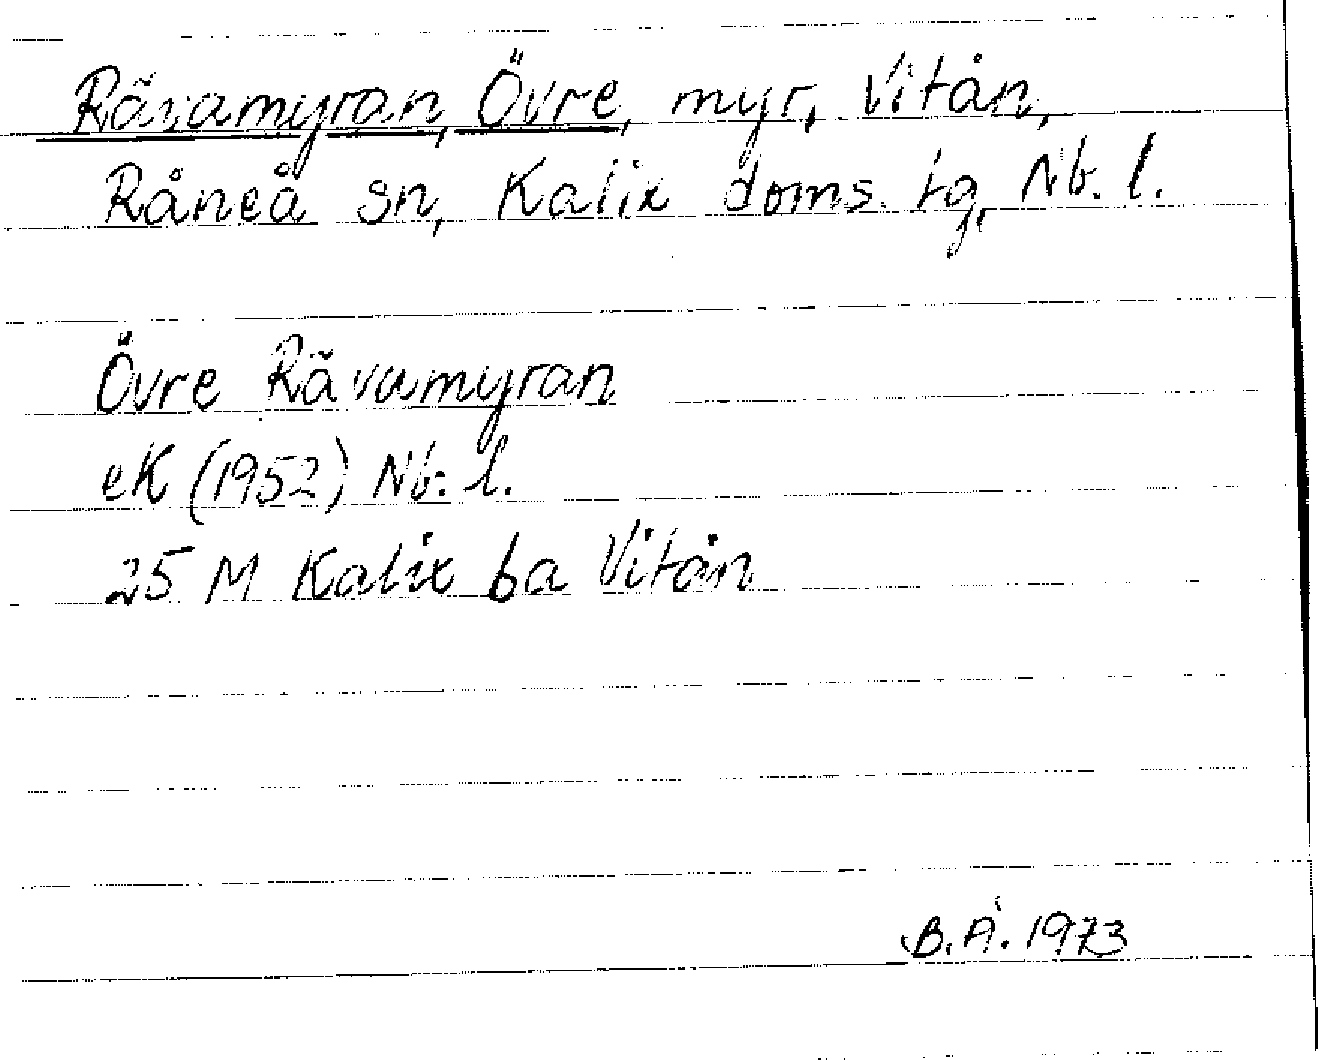 Rävamyran, Övre, myr, Vitån,
Råneå sn, Kalix doms. tg, Nb. l.
Övre Rävamyran
eK (1952) Nb. l.
25 M Kalix 6a Vitån
B.Å. 1973